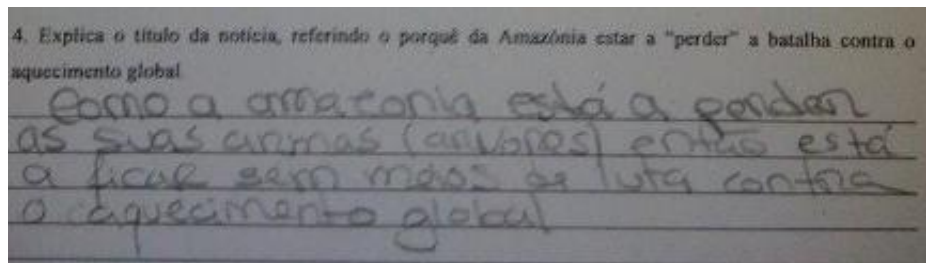 4. Explica o título da notícia, referindo o porquê da Amazónia estar a "perder" a batalha contra o
aquecimento global
Como a amazonia está a perder
as suas armas (arvores) então está
a ficar sem meios de luta contra
o aquecimento global